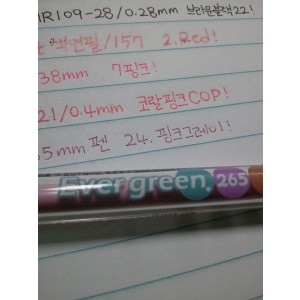 IR109-28/0.28mm 브라운블랙22!
색연필/157 2.Red!
38mm 7핑크!
21/0.4mm 코랄핑크COP!
5mm 펜 24.핑크그레이!
Evergreen 265